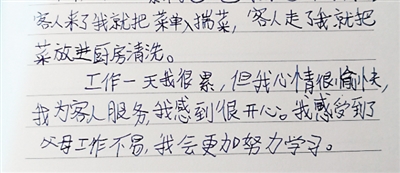 客人来了我就把菜单入揣菜，客人走了我就把
菜放进厨房清洗。
工作一天我很累，但我心情很愉快，
我为客人服务我感到很开心。我感受到了
父母工作不易，我会更加努力学习。